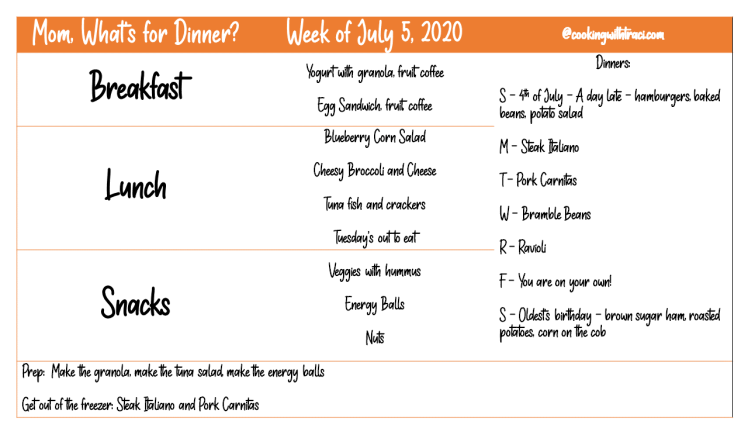 Mom, What's for Dinner?
Week of July 5, 2020
@cookingwithtraci.com
Breakfast
Yogurt with granola, fruit, coffee
Egg Sandwich, fruit, coffee
Lunch
Blueberry Corn Salad
Cheesy Broccoli and Cheese
Tuna fish and crackers
Tuesday's out to eat
Snacks
Veggies with hummus
Energy Balls
Nuts
Dinners:
S – 4th of July – A day late – hamburgers, baked
beans, potato salad
M – Steak Italiano
T – Pork Carnitas
W – Bramble Beans
R – Ravioli
F – You are on your own!
S – Oldest's birthday – brown sugar ham, roasted
potatoes, corn on the cob
Prep: Make the granola, make the tuna salad, make the energy balls
Get out of the freezer: Steak Italiano and Pork Carnitas